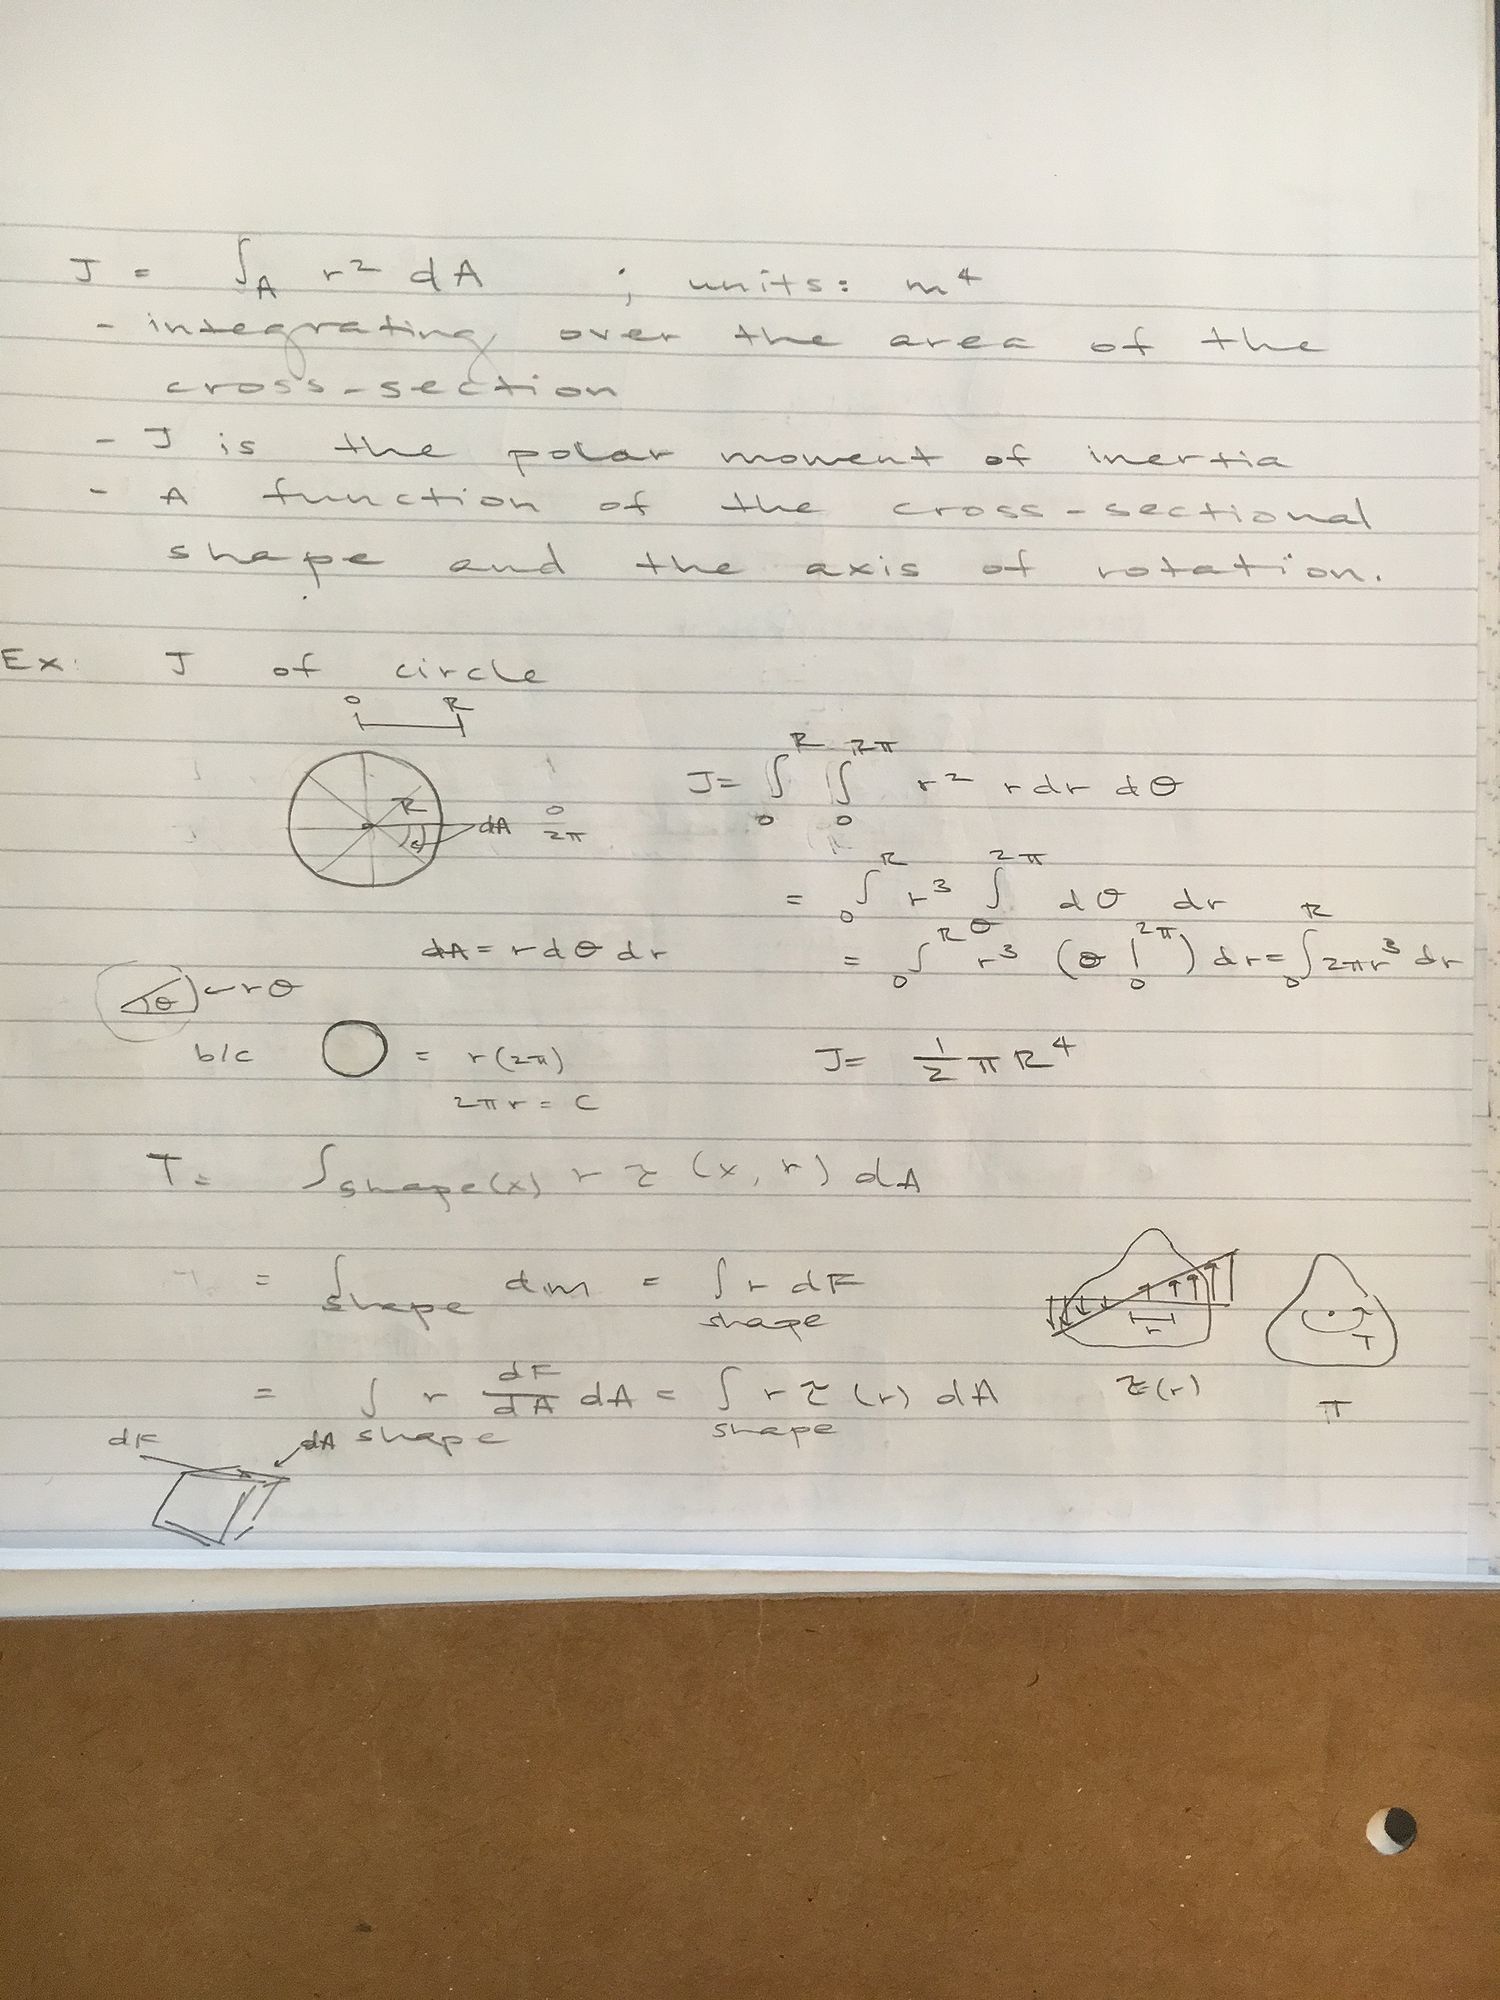 J = ∫_A r² dA ; units: m⁴
- integrating over the area of the
cross-section
- J is the polar moment of inertia
- A function of the cross-sectional
shape and the axis of rotation.
Ex: J of circle
0 R
R
dA 0
2π
J= ∫₀^R ∫₀^2π r² r dr dθ
= ∫₀^R r³ ∫₀^2π dθ dr
dA = r dθ dr
= ∫₀^R r³ (θ |₀^2π) dr = ∫₀^R 2πr³ dr
θ ← rθ
b/c = r(2π)
2πr = C
J= 1/2 π R⁴
T= ∫_shape(x) r τ (x, r) dA
= ∫_shape dm = ∫_shape r dF
r
T
= ∫_shape r dF/dA dA = ∫_shape r τ (r) dA
τ(r)
dF dA